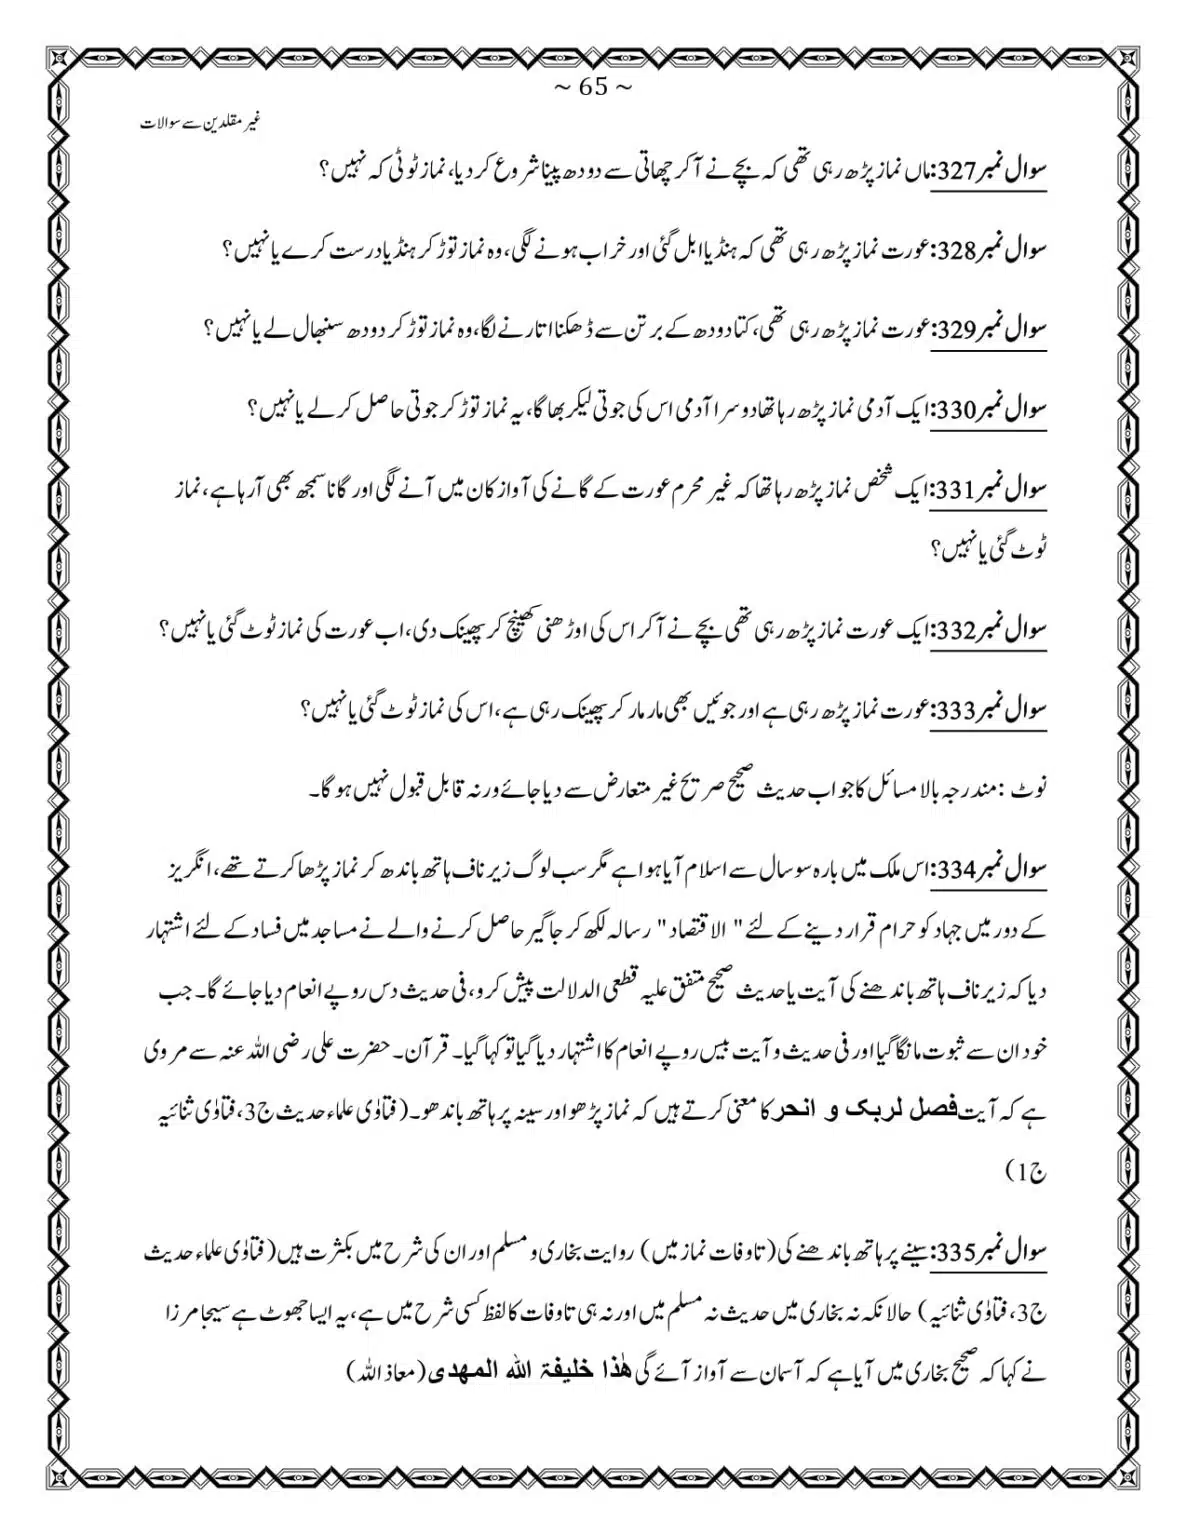 ~ 65 ~
غیر مقلدین سے سوالات
سوال نمبر327:ماں نماز پڑھ رہی تھی کہ بچے نے آکر چھاتی سے دودھ پینا شروع کر دیا، نماز ٹوٹی کہ نہیں؟
سوال نمبر328:عورت نماز پڑھ رہی تھی کہ ہنڈیا ابل گئی اور خراب ہونے لگی، وہ نماز توڑ کر ہنڈیا درست کرے یا نہیں؟
سوال نمبر329:عورت نماز پڑھ رہی تھی، کتا دودھ کے برتن سے ڈھکنا اتارنے لگا، وہ نماز توڑ کر دودھ سنبھال لے یا نہیں؟
سوال نمبر330:ایک آدمی نماز پڑھ رہا تھا دوسرا آدمی اس کی جوتی لیکر بھاگا، یہ نماز توڑ کر جوتی حاصل کر لے یا نہیں؟
سوال نمبر331:ایک شخص نماز پڑھ رہا تھا کہ غیر محرم عورت کے گانے کی آواز کان میں آنے لگی اور گانا سمجھ بھی آرہا ہے، نماز
ٹوٹ گئی یا نہیں؟
سوال نمبر332:ایک عورت نماز پڑھ رہی تھی بچے نے آکر اس کی اوڑھنی کھینچ کر پھینک دی، اب عورت کی نماز ٹوٹ گئی یا نہیں؟
سوال نمبر333:عورت نماز پڑھ رہی ہے اور جوئیں بھی مار مار کر پھینک رہی ہے، اس کی نماز ٹوٹ گئی یا نہیں؟
نوٹ :مندرجہ بالا مسائل کا جواب حدیث صحیح صریح غیر متعارض سے دیا جائے ورنہ قابل قبول نہیں ہو گا۔
سوال نمبر334:اس ملک میں بارہ سو سال سے اسلام آیا ہوا ہے مگر سب لوگ زیر ناف ہاتھ باندھ کر نماز پڑھا کرتے تھے، انگریز
کے دور میں جہاد کو حرام قرار دینے کے لئے " الاقتصاد " رسالہ لکھ کر جاگیر حاصل کرنے والے نے مساجد میں فساد کے لئے اشتہار
دیا کہ زیر ناف ہاتھ باندھنے کی آیت یا حدیث صحیح متفق علیہ قطعی الدلالت پیش کرو، فی حدیث دس روپے انعام دیا جائے گا۔ جب
خود ان سے ثبوت مانگا گیا اور فی حدیث و آیت بیس روپے انعام کا اشتہار دیا گیا تو کہا گیا۔ قرآن۔ حضرت علی رضی اللہ عنہ سے مروی
ہے کہ آیت فصل لربک و انحر کا معنی کرتے ہیں کہ نماز پڑھو اور سینہ پر ہاتھ باندھو۔ (فتاوٰی علماء حدیث ج3، فتاوٰی ثنائیہ
ج1)
سوال نمبر335:سینے پر ہاتھ باندھنے کی (تاوفات نماز میں) روایت بخاری و مسلم اور ان کی شرح میں بکثرت ہیں (فتاوٰی علماء حدیث
ج3، فتاوٰی ثنائیہ) حالانکہ نہ بخاری میں حدیث نہ مسلم میں اور نہ ہی تاوفات کا لفظ کسی شرح میں ہے، یہ ایسا جھوٹ ہے سیجا مرزا
نے کہا کہ صحیح بخاری میں آیا ہے کہ آسمان سے آواز آئے گی ھٰذا خلیفۃ اللہ المھدی (معاذ اللہ)